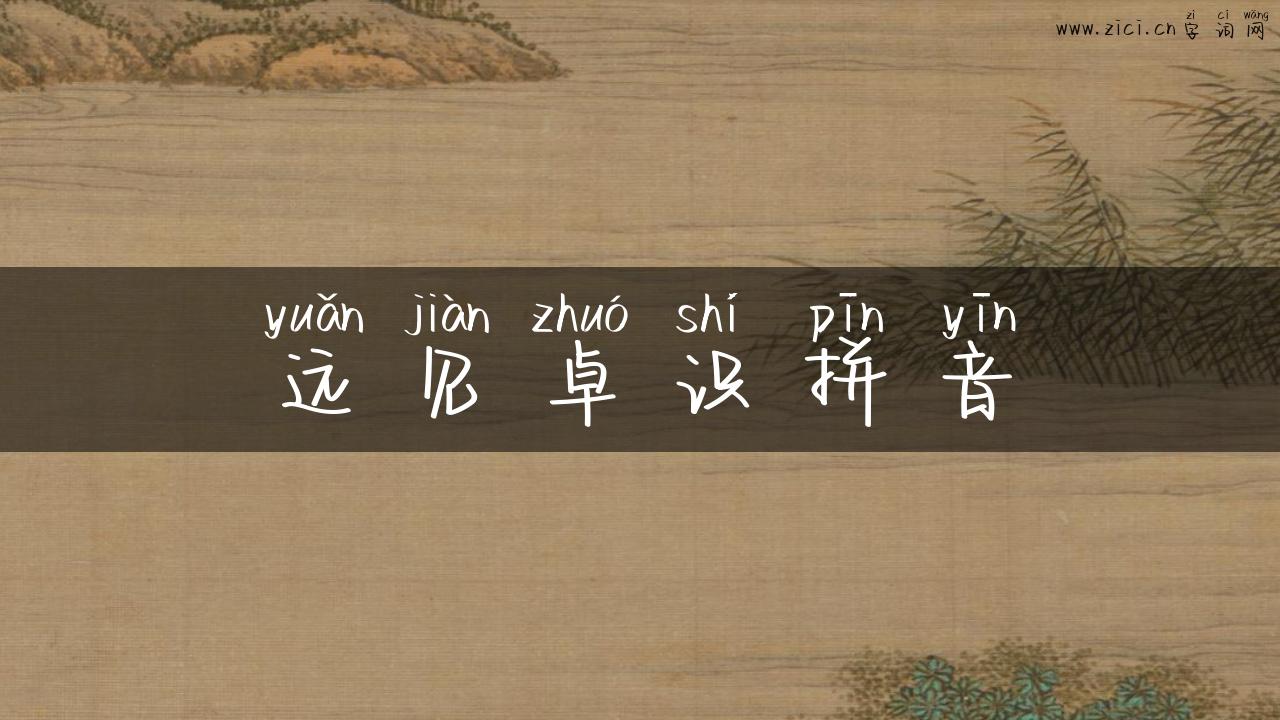 zì cí wǎng
www.zici.cn 字词网
yuǎn jiàn zhuó shí pīn yīn
远见卓识拼音